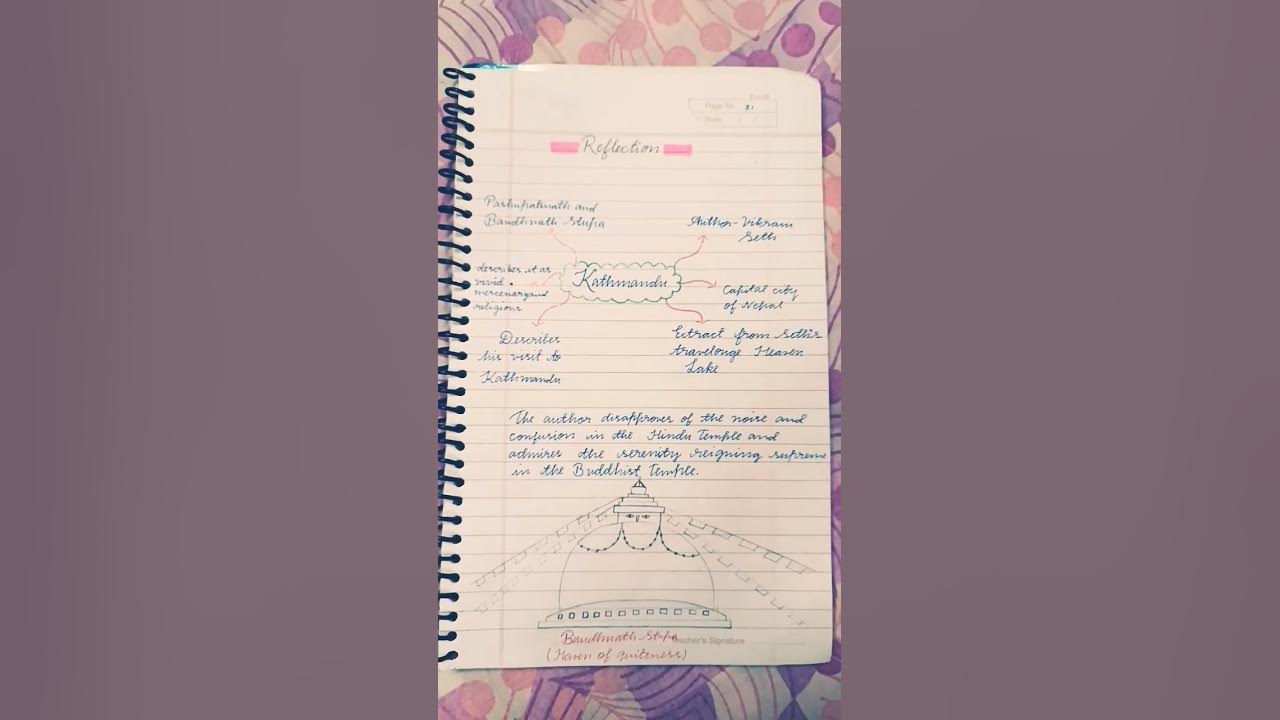 Page No. 31
Date / /
Reflection
Pashupatinath and
Baudhnath Stupa
Author-Vikram
Seth
describes it as
vivid.
mercenary and
religious
Kathmandu
Capital city
of Nepal
Describes
his visit to
Kathmandu
Extract from Seth's
travelouge Heaven
Lake
The author disapproves of the noise and
confusion in the Hindu Temple and
admires the serenity reigning supreme
in the Buddhist Temple.
Baudhnath Stupa
Teacher's Signature
(Haven of quiteness)